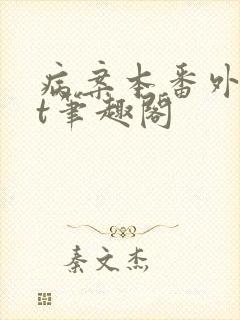 病案本番外
t笔趣阁
秦文杰